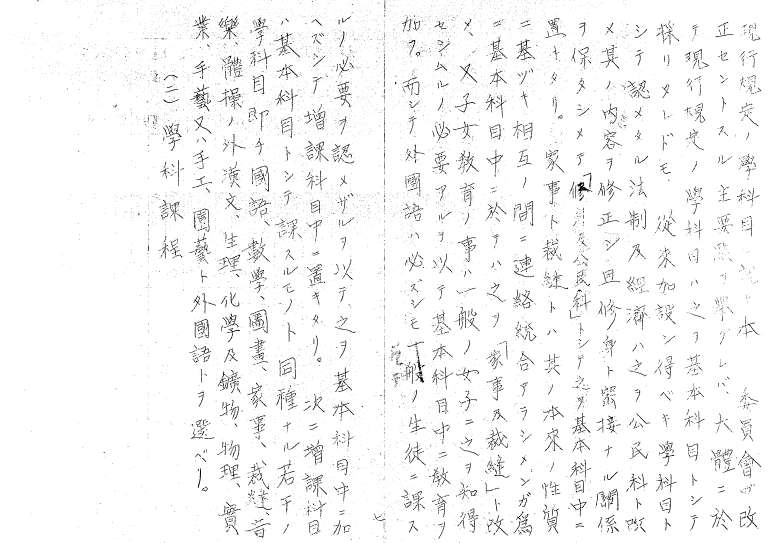 現行規定ノ學科目ニ就キ本 委員會ガ改
正セントスル主要點ヲ擧グレバ、大體ニ於
テ現行規定ノ學科目ハ之ヲ基本科目トシテ
採リタレドモ、從來加設シ得ベキ學科目ト
シテ認メタル法制及經濟ハ之ヲ公民科ト改
メ其ノ内容ヲ修正シ且修身ト密接ナル關係
ヲ保タシメテ「修身及公民科」トシテ之ヲ基本科目中ニ
置キタリ。家事ト裁縫トハ其ノ本來ノ性質
ニ基ヅキ相互ノ間ニ連絡統合アラシメンガ爲
ニ基本科目中ニ於テハ之ヲ「家事及裁縫」ト改
メ、又子女敎育ノ事ハ一般ノ女子ニ之ヲ知得
セシムルノ必要アルヲ以テ基本科目中ニ敎育ヲ
加フ。而シテ外國語ハ必ズシモ一般ノ生徒ニ課ス
七
ルノ必要ヲ認メザルヲ以テ、之ヲ基本科目中ニ加
ヘズシテ增課科目中ニ置キタリ。 次ニ增課科目
ハ基本科目トシテ課スルモノト同種ナル若干ノ
學科目即チ國語、數學、圖畫、家事、裁縫、音
樂、體操ノ外漢文、生理、化學及鑛物、物理、實
業、手藝又ハ手工、園藝ト外國語トヲ選ベリ。
(二)學科課程